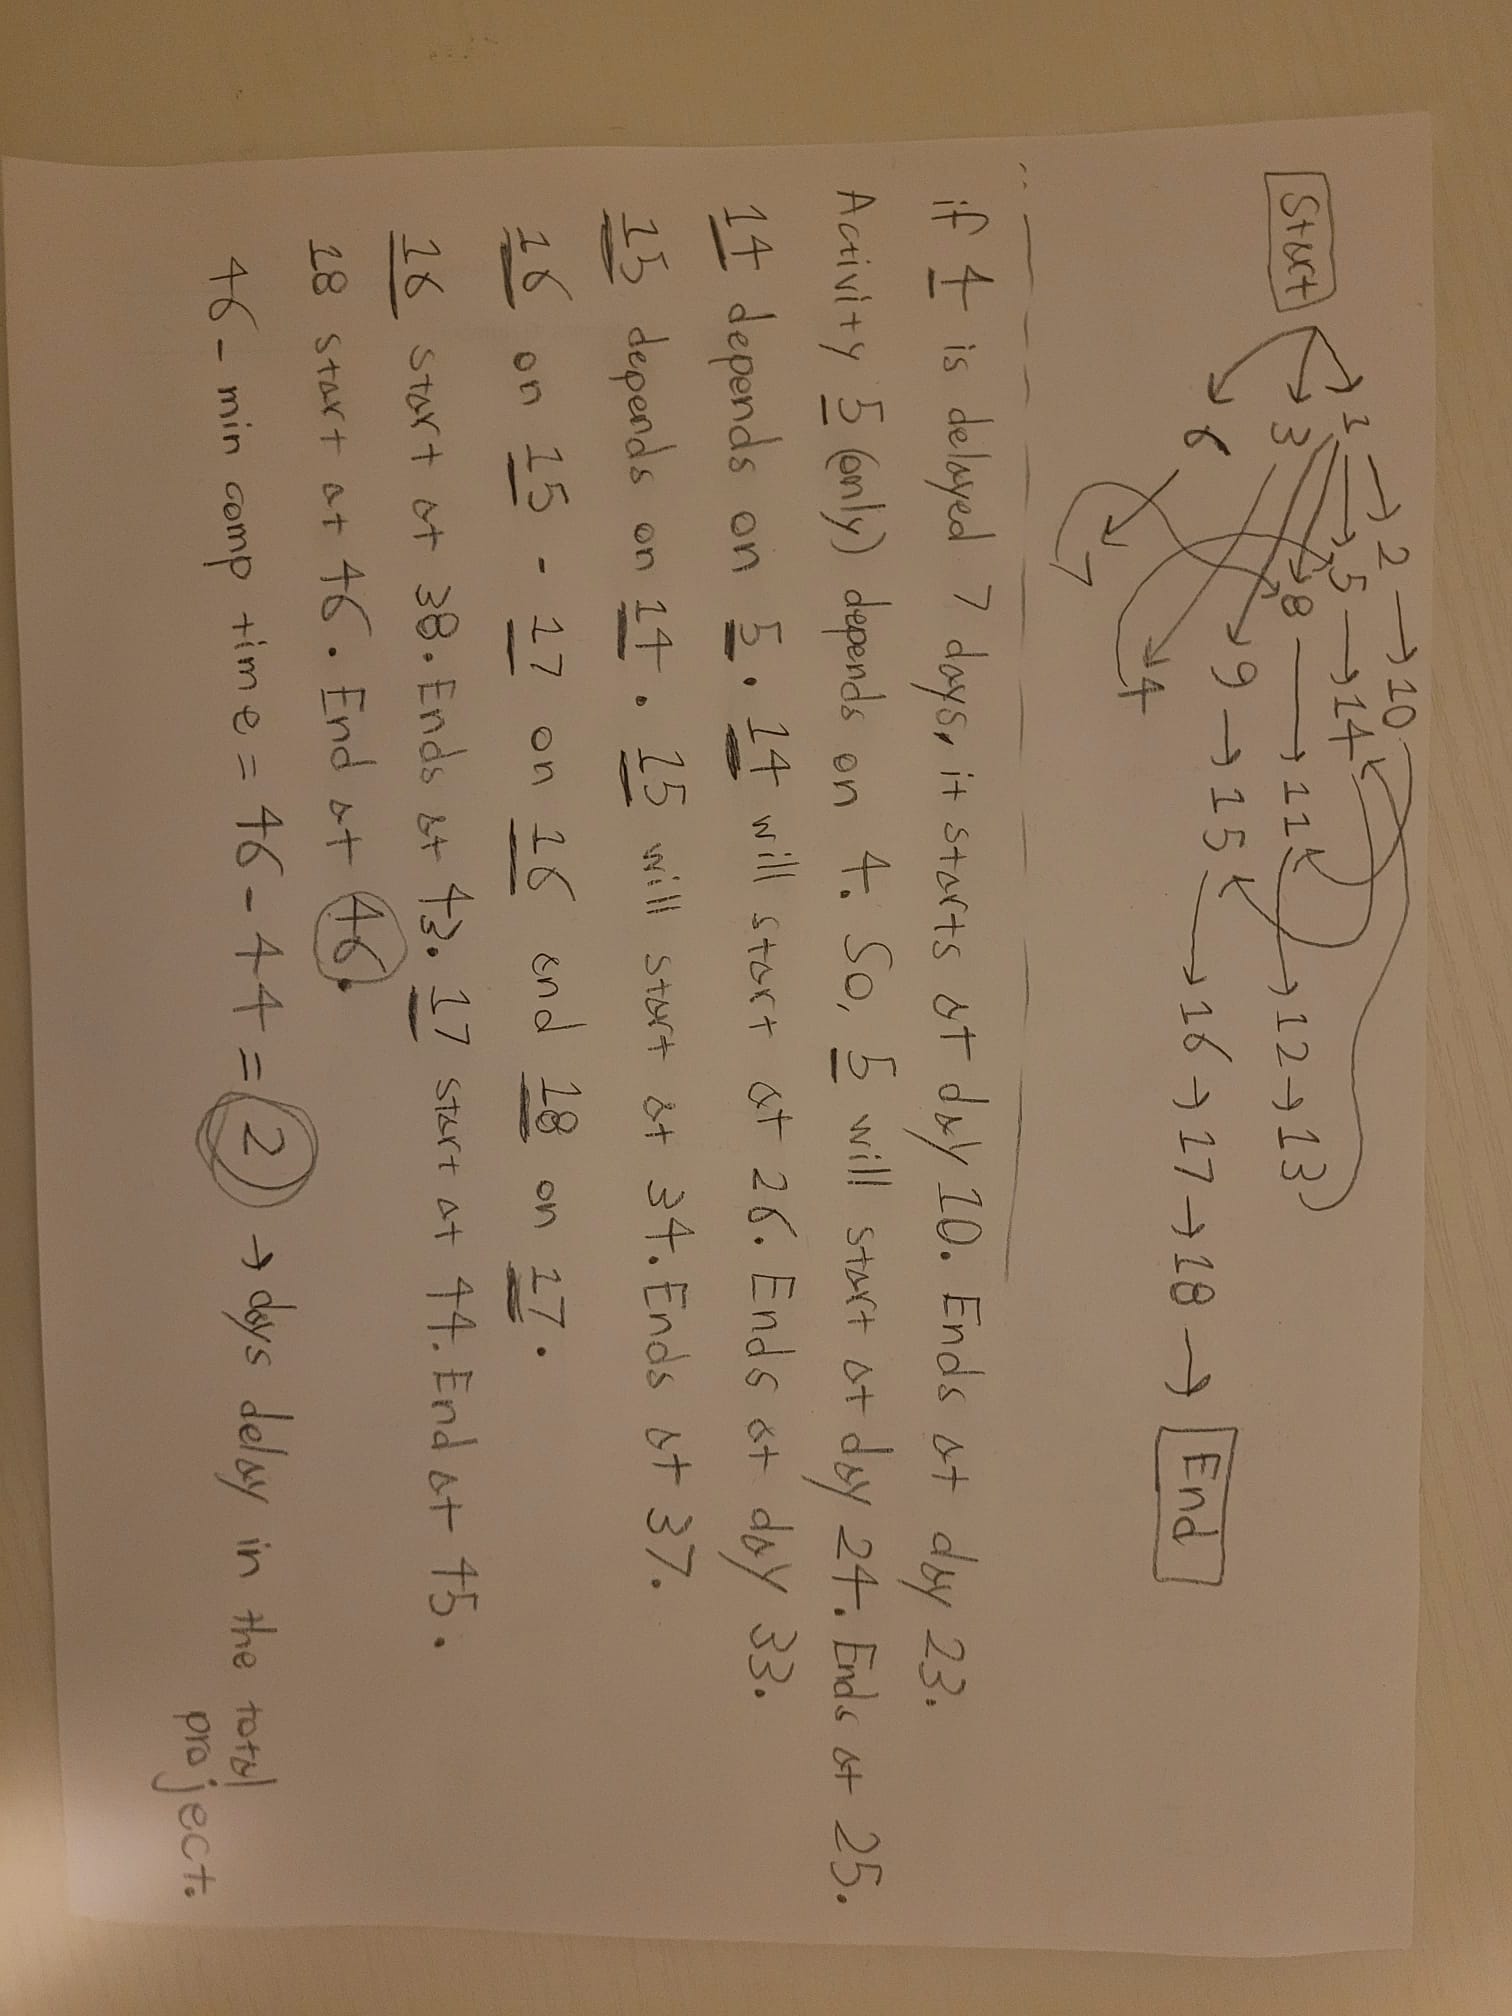 Start → 1 → 2 → 10
3 → 5 → 14
8 → 11 → 12 → 13
6 → 9 → 15 → 16 → 17 → 18 → End
7
4
if 4 is delayed 7 days, it starts at day 10. Ends at day 23.
Activity 5 (only) depends on 4. So, 5 will start at day 24. Ends at 25.
14 depends on 5. 14 will start at 26. Ends at day 33.
15 depends on 14. 15 will start at 34. Ends at 37.
16 on 15 - 17 on 16 and 18 on 17.
16 start at 38. Ends at 43. 17 start at 44. End at 45.
18 start at 46. End at 46.
46 - min comp time = 46 - 44 = 2 → days delay in the total
project.